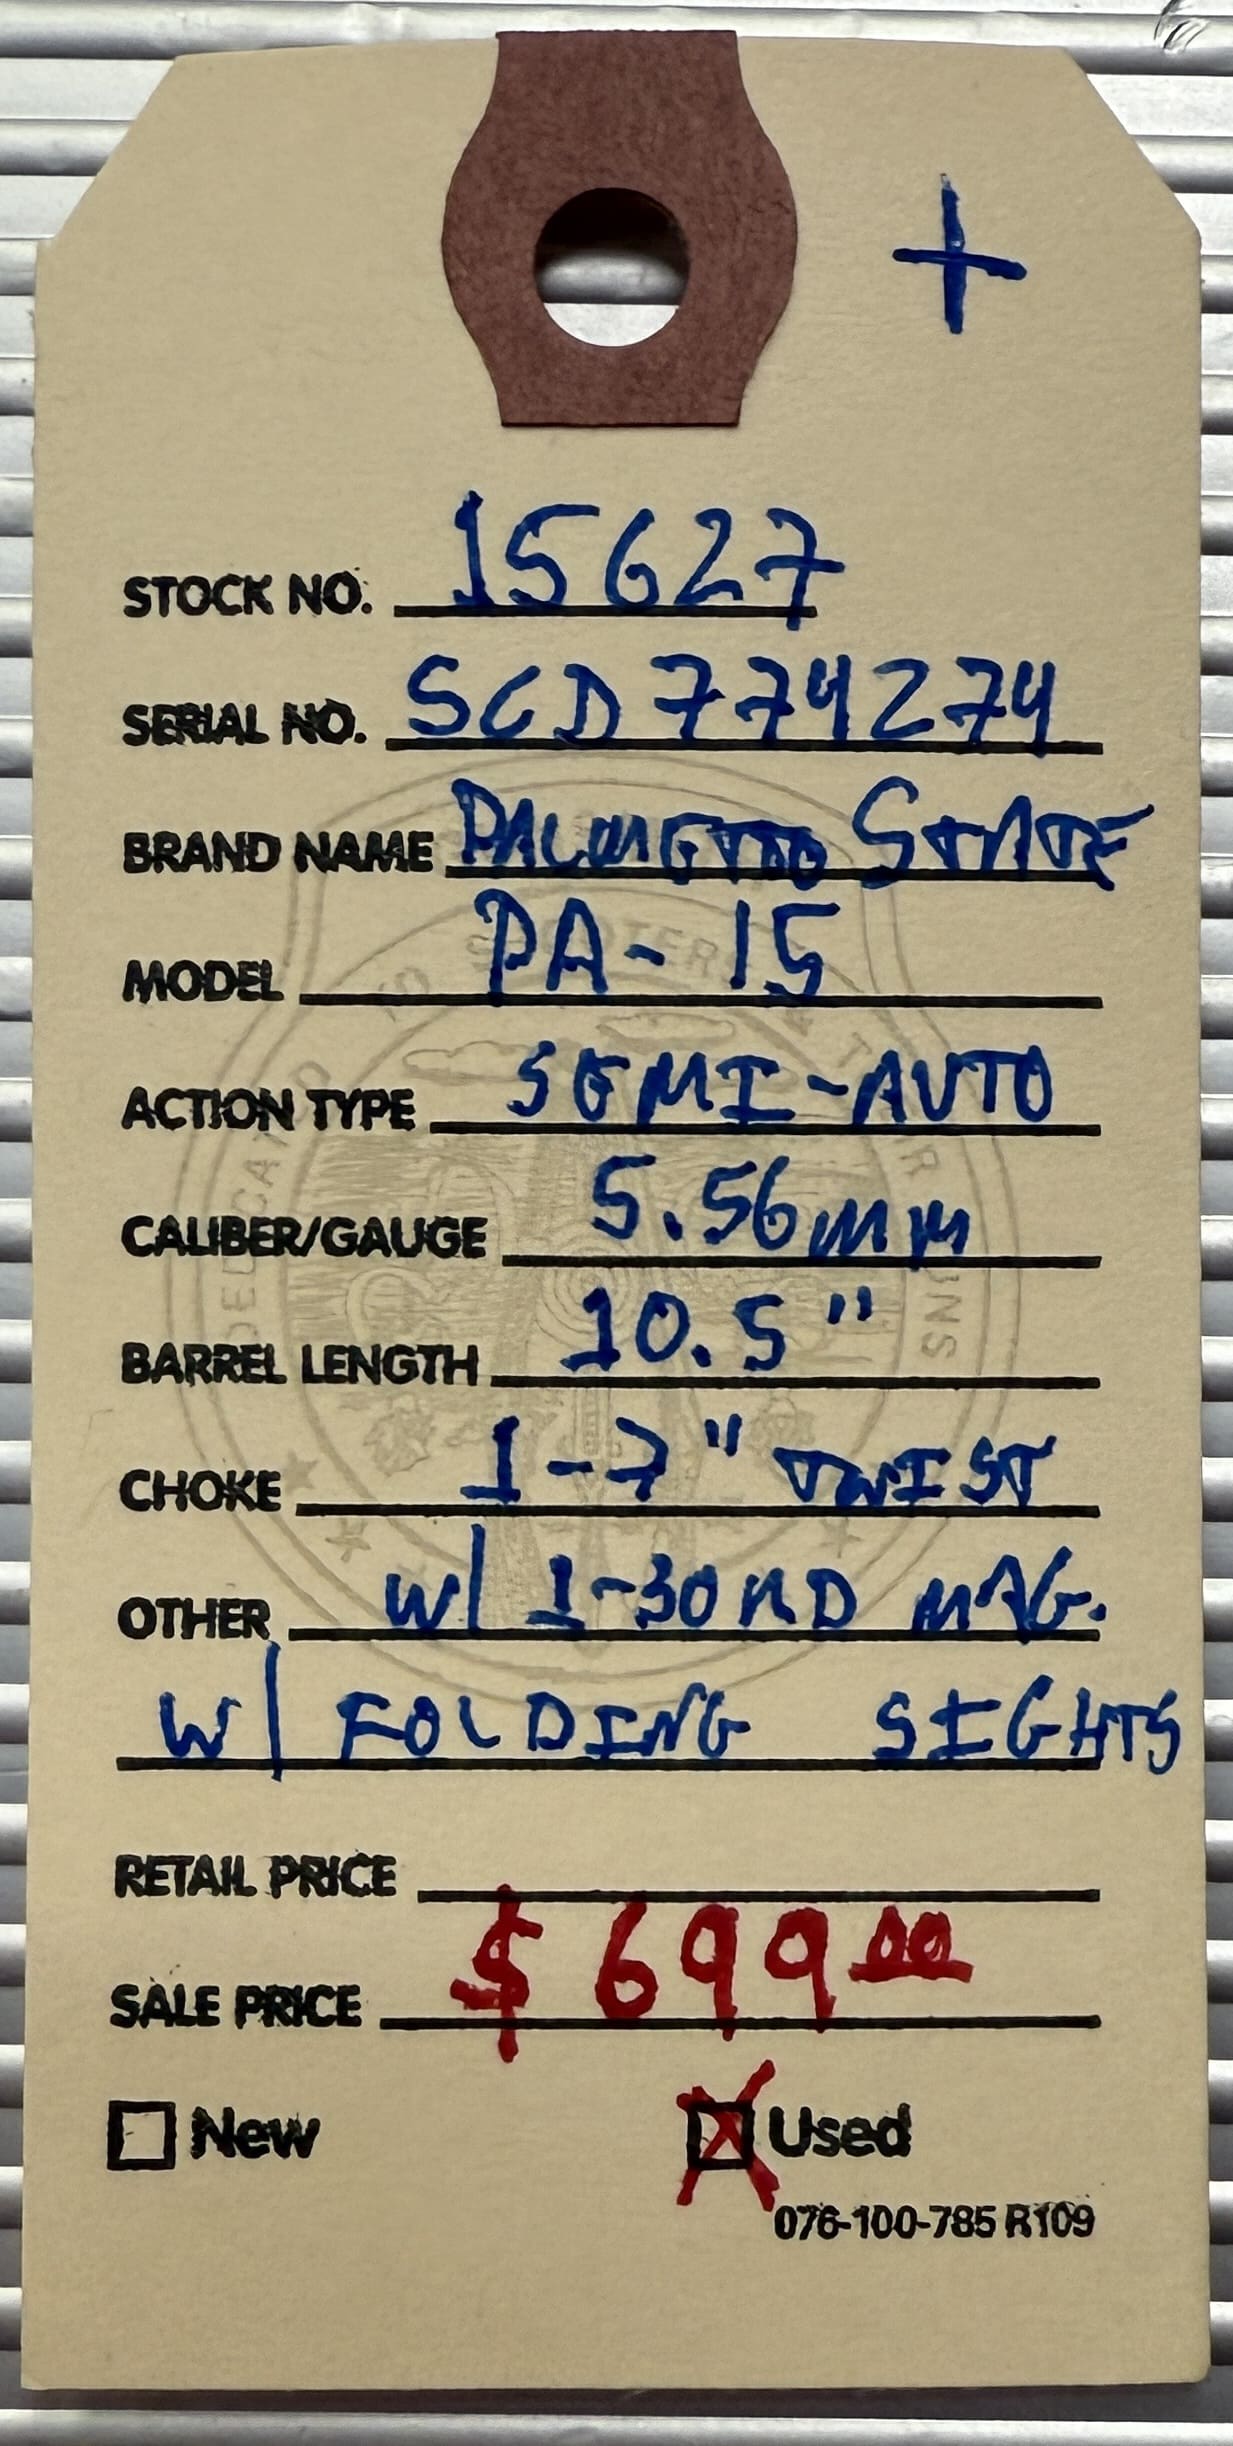 +
STOCK NO. 15627
SERIAL NO. SCD774274
BRAND NAME PALMETTO STATE
MODEL PA-15
ACTION TYPE SEMI-AUTO
CALIBER/GAUGE 5.56mm
BARREL LENGTH 10.5"
CHOKE 1-7" TWIST
OTHER W/ 1-30RD MAG.
W/ FOLDING SIGHTS
RETAIL PRICE
SALE PRICE $699.00
New Used
076-100-785 R109